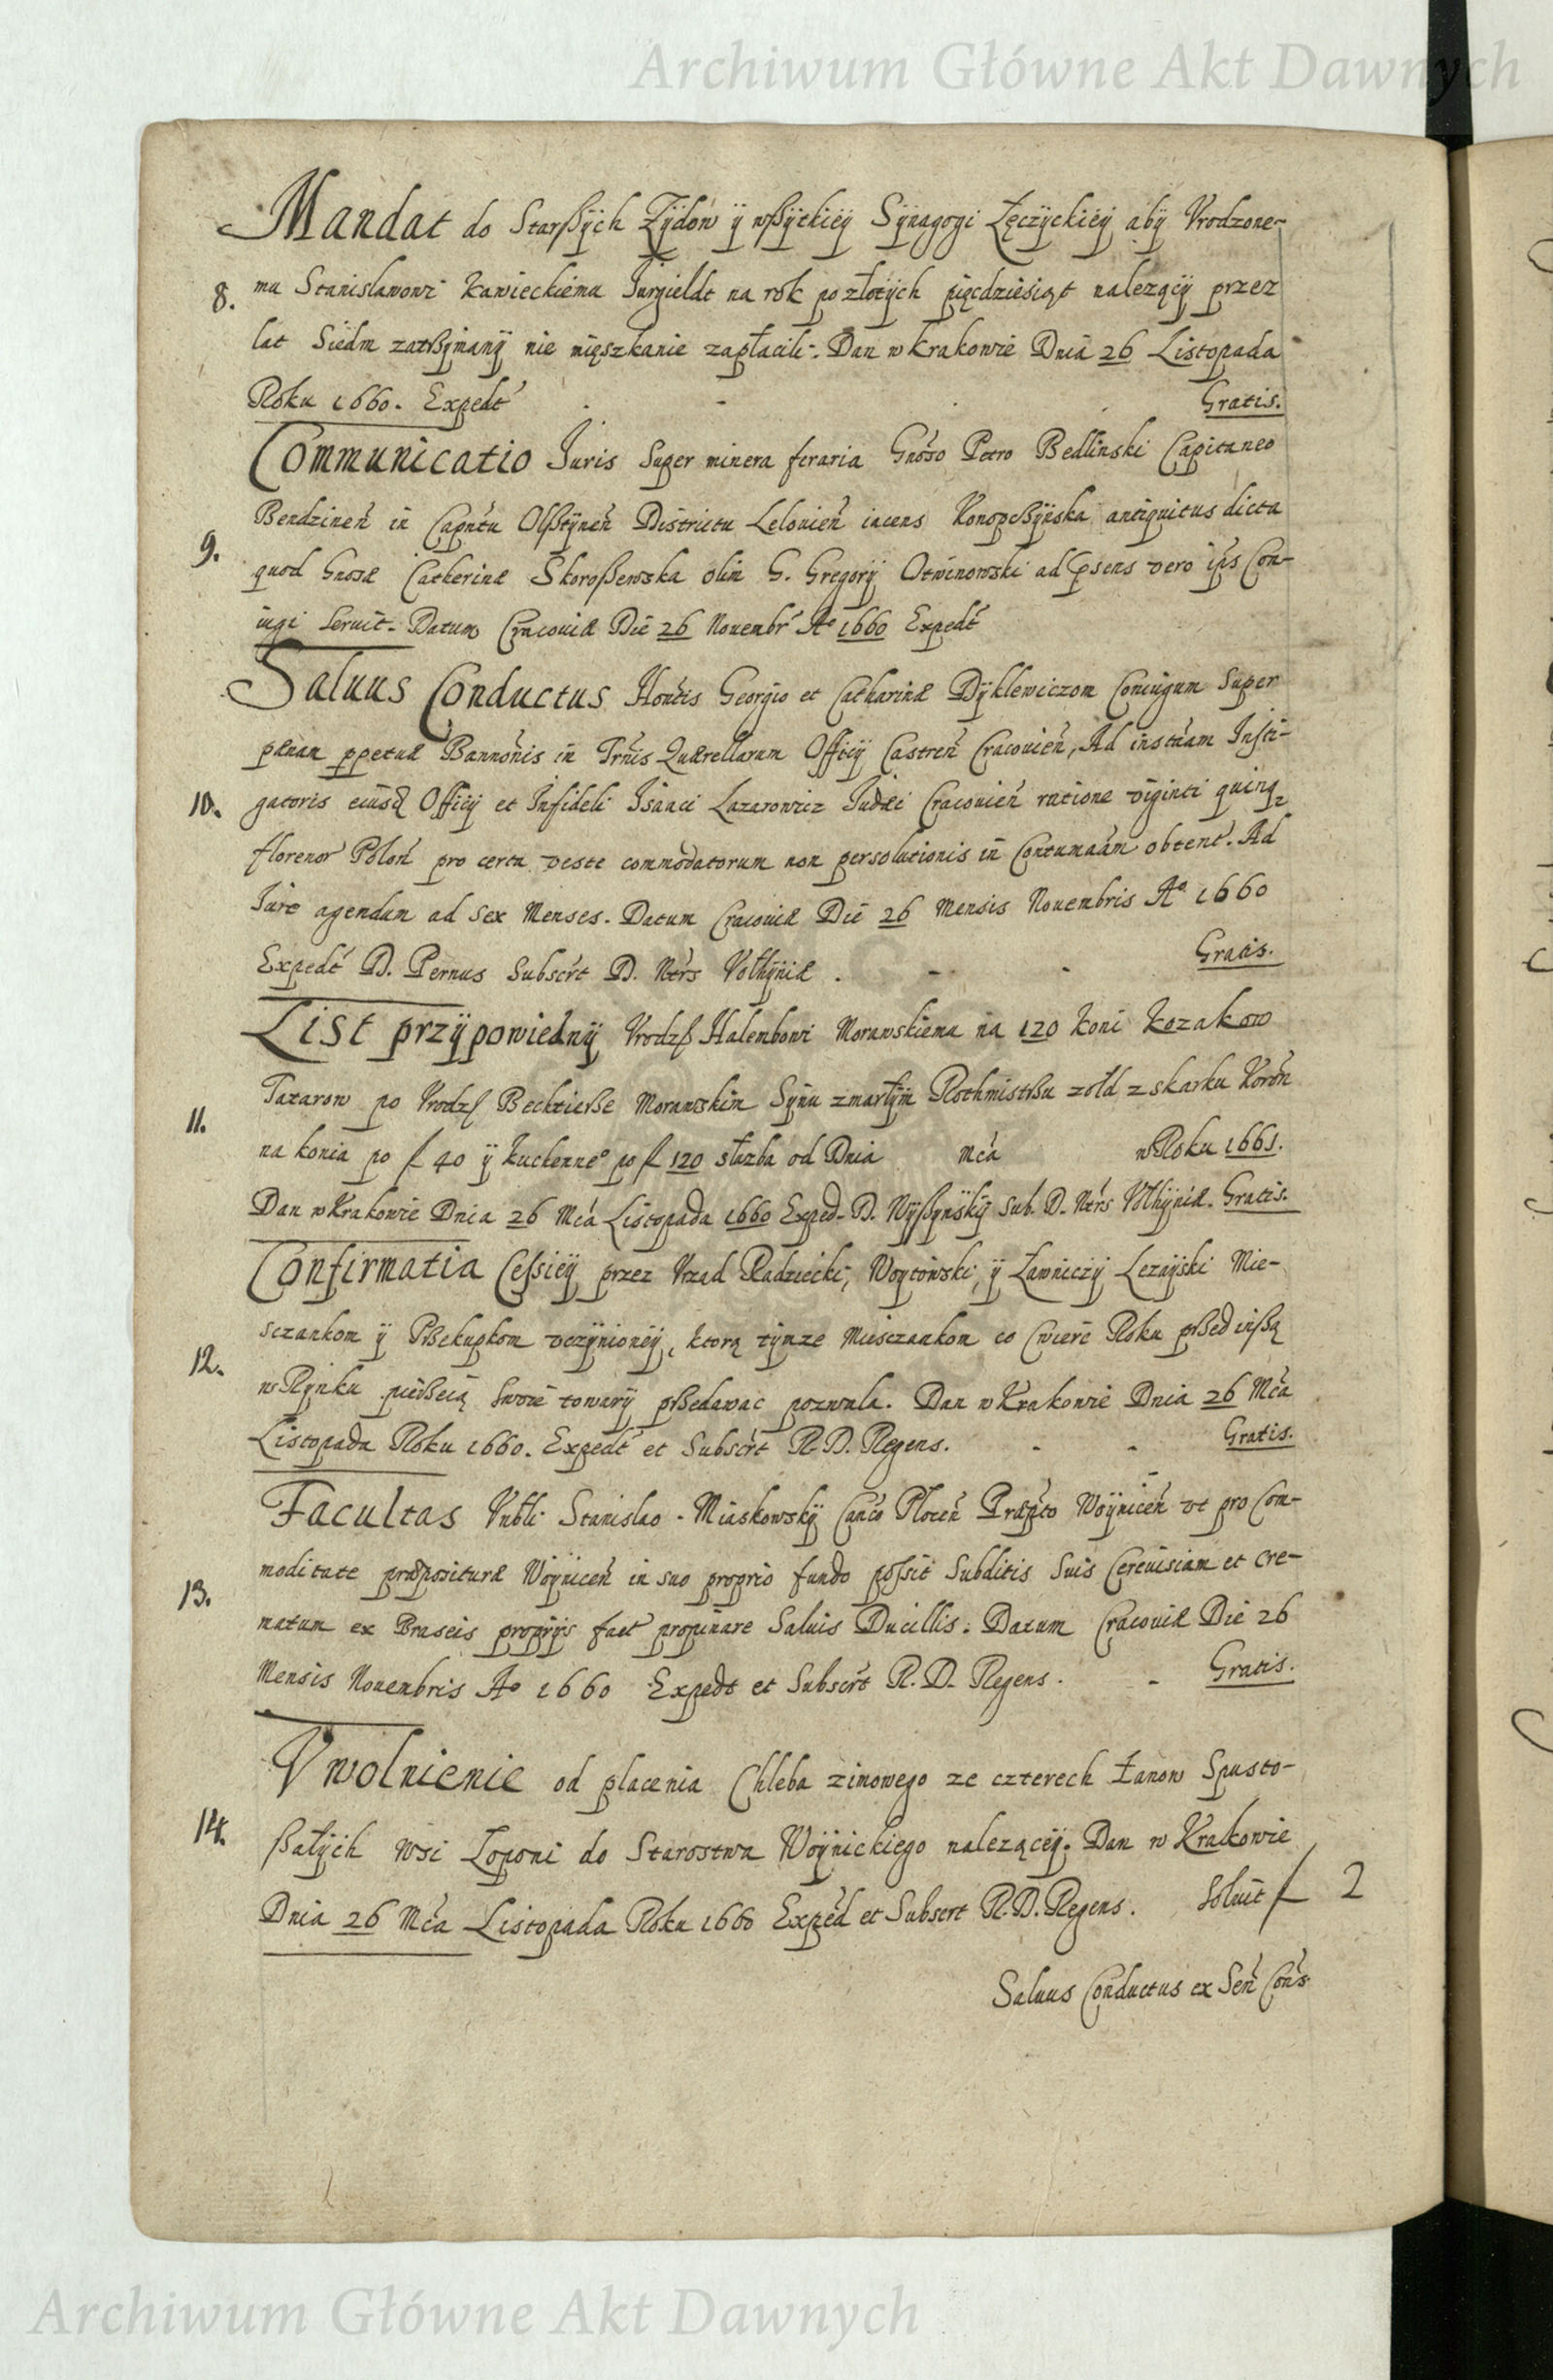 Archiwum Główne Akt Dawnych
Mandat do Starßÿch Zÿdow ÿ wßÿtkiéÿ Sÿnagogi Łęczÿckiéÿ abÿ Vrodzone-
8. mu Stanislawowi Kawieckiemu Jurgieldt na rok po złotÿch pięcdziesiąt nalezącÿ przez
lat Siedm zatrßÿmanÿ nie mięszkanie zapłacili. Dan w Krakowie Dnia 26 Listopada
Roku 1660. Expedt Gratis.
Communicatio Juris Super minera feraria Gnoso Petro Bedlinski Capitaneo
9. Bendzineñ in Capntu Olßtÿneñ Districtu Leloviéñ iacens Konopcßÿska antiquitus dicta
quod Gnosæ Catherinæ Skoroßewska olim G. Gregorÿ Otwinowski ad psens vero ips Con-
iugi Seruit. Datum Cracouiæ Die 26 Nouembr Ao 1660 Expedt
Saluus Conductus Hontis Georgio et Catharinæ Dÿklewiczom Coniugum Super
pænam ppetuæ Bannonis in Trnis Quærellarum Officÿ Castreñ Cracouieñ, Ad instam Insti-
10. gatoris eiusq Officÿ et Infideli Isaaci Lazarowicz Judæi Cracouieñ ratione viginti quinq
florenor Poloñ pro certa veste commodatorum non persolutionis in Contumaam obtent. Ad
Jure agendum ad sex Menses. Datum Cracouiæ Die 26 Mensis Nouembris Ao 1660
Expedt D. Pernus Subscrt D. Ntrs Volhÿniæ. Gratis.
List przÿpowiednÿ Vrodzß Halembowi Morawskiemu na 120 koni Kozakow
11. Tatarow po Vrodzß Morawskim Sÿnu zmarłÿm Rothmistrßu zołd z skarbu Koroñ
na konia po f 40 ÿ kuchenneo po f 120 słuzba od Dnia Mca w Roku 1661.
Dan w Krakowie Dnia 26 Mca Listopada 1660 Exped. D. Wÿßÿnskÿ Sub. D. Ntrs Volhÿniæ. Gratis.
Confirmatia Cessieÿ przez Vrzad Radziecki, Woytowski, ÿ Ławniczÿ Lezaÿski Mie-
sczankom ÿ Przekupkom vczÿnioneÿ, ktorą tÿmze Miesczankom co cwierc Roku
12. w Rÿnku Swoie towarÿ prßedawac pozwala. Dan w Krakowie Dnia 26 Mca
Listopada Roku 1660. Expedt et Subscrt R. D. Regens. Gratis.
Facultas Vnbli Stanislao Miaskowskÿ Canco Ploceñ Præpto Woÿniceñ vt pro Com-
13. moditate præposituræ Woÿniceñ in suo proprio fundo possit Subditis Suis Cereuisiam et cre-
matum ex Braseis proprÿs fact propinare Saluis Ducillis. Datum Cracouiæ Die 26
Mensis Nouembris Ao 1660 Expedt et Subscrt R. D. Regens. Gratis.
Vwolnienie od placenia Chleba zimowego ze czterech Łanow Spusto-
14. ßałÿch wsi Łoponi do Starostwa Woÿnickiego naleząceÿ. Dan w Krakowie
Dnia 26 Mca Listopada Roku 1660 Exped et Subscrt R. D. Regens. Soluit f 2
Saluus Conductus ex Señ Cons
Archiwum Główne Akt Dawnych